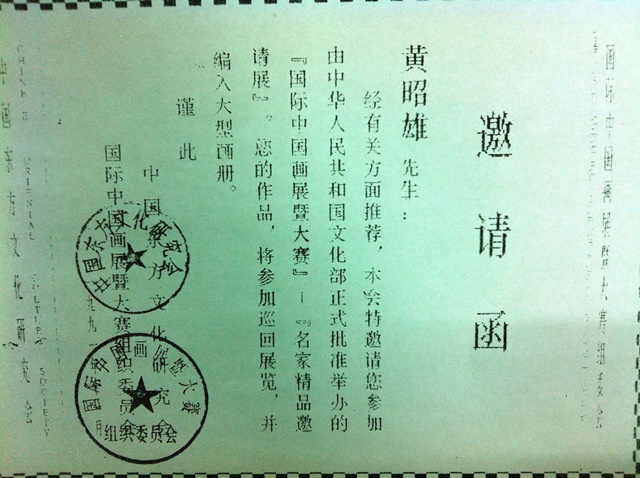 国际中国画展暨大赛组委会
邀请函
黄昭雄 先生：
经有关方面推荐，本会特邀请您参加
由中华人民共和国文化部正式批准举办的
『国际中国画展暨大赛』—『名家精品邀
请展』。您的作品，将参加巡回展览，并
编入大型画册。
谨此
中国东方文化研究会
国际中国画展暨大赛组织委员会
中国东方文化研究会
国际中国画展暨大赛
组织委员会
CHINESE ORIENTAL CULTURE SOCIETY
中国东方文化研究会